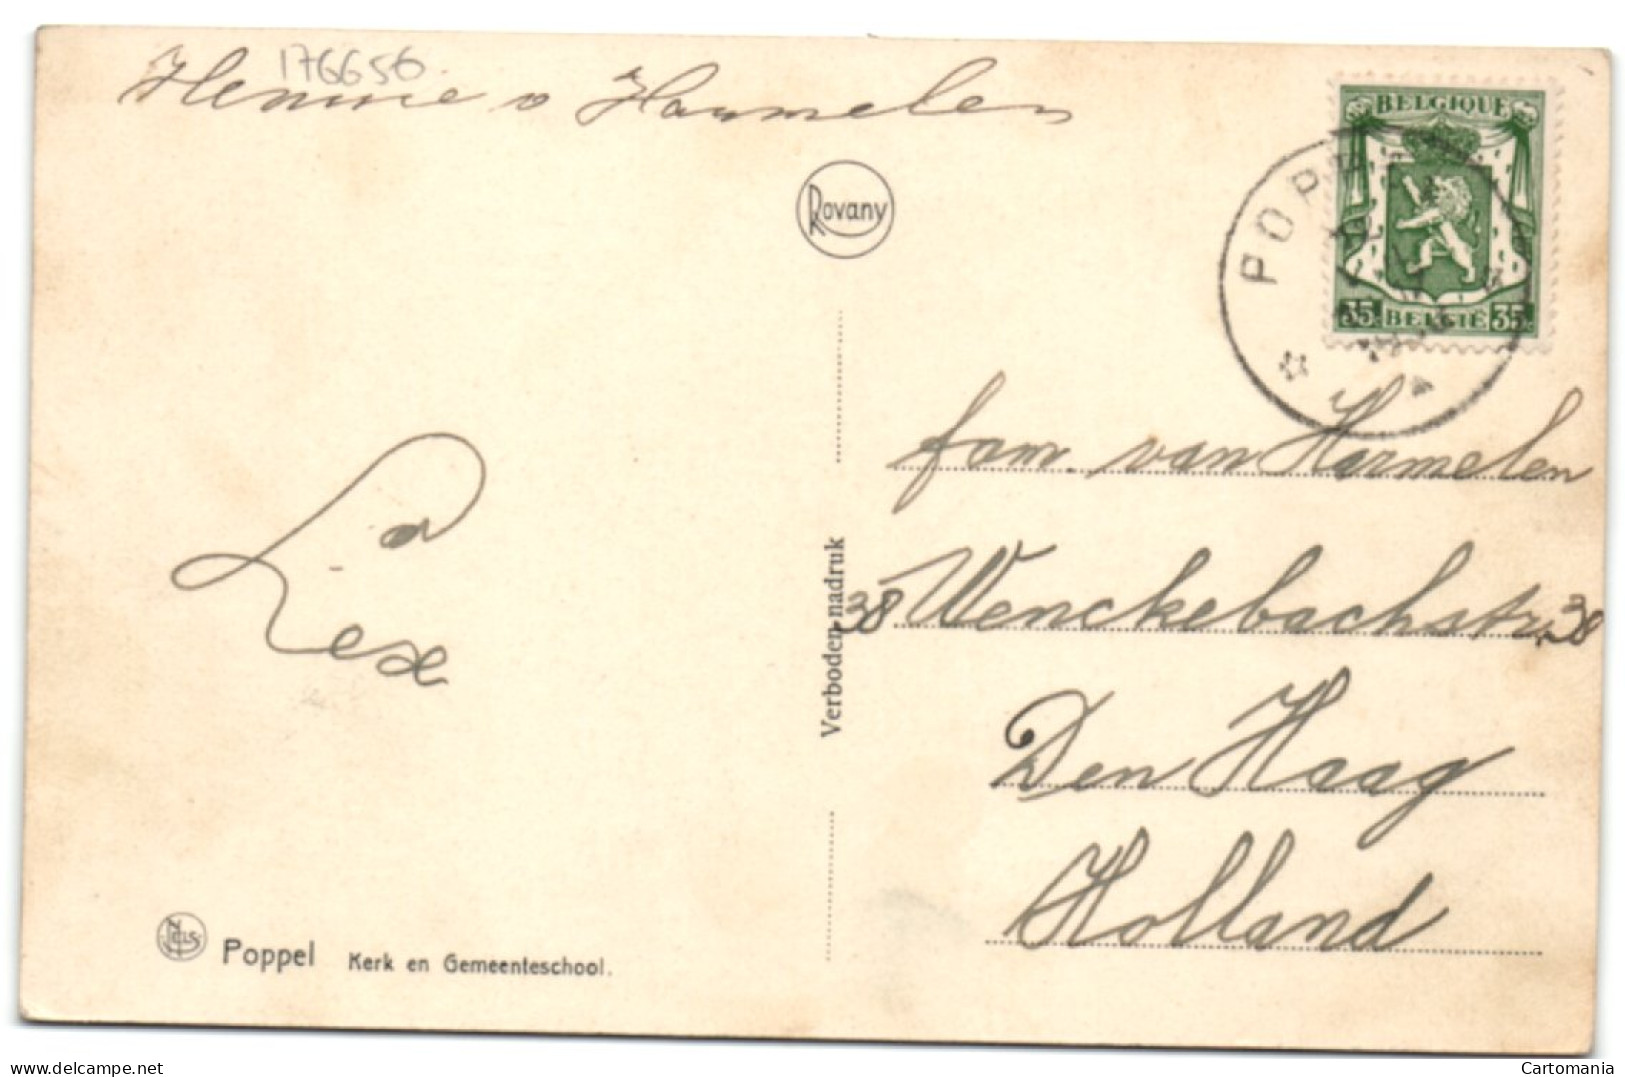 176656
Hennie v Harmelen
Rovany
BELGIQUE
35c BELGIË 35c
POPPEL
Lex
fam. van Harmelen
38 Wenckebachstr. 38
Den Haag
Holland
Verboden nadruk
NELS
Poppel Kerk en Gemeenteschool.
www.delcampe.net
Cartomania